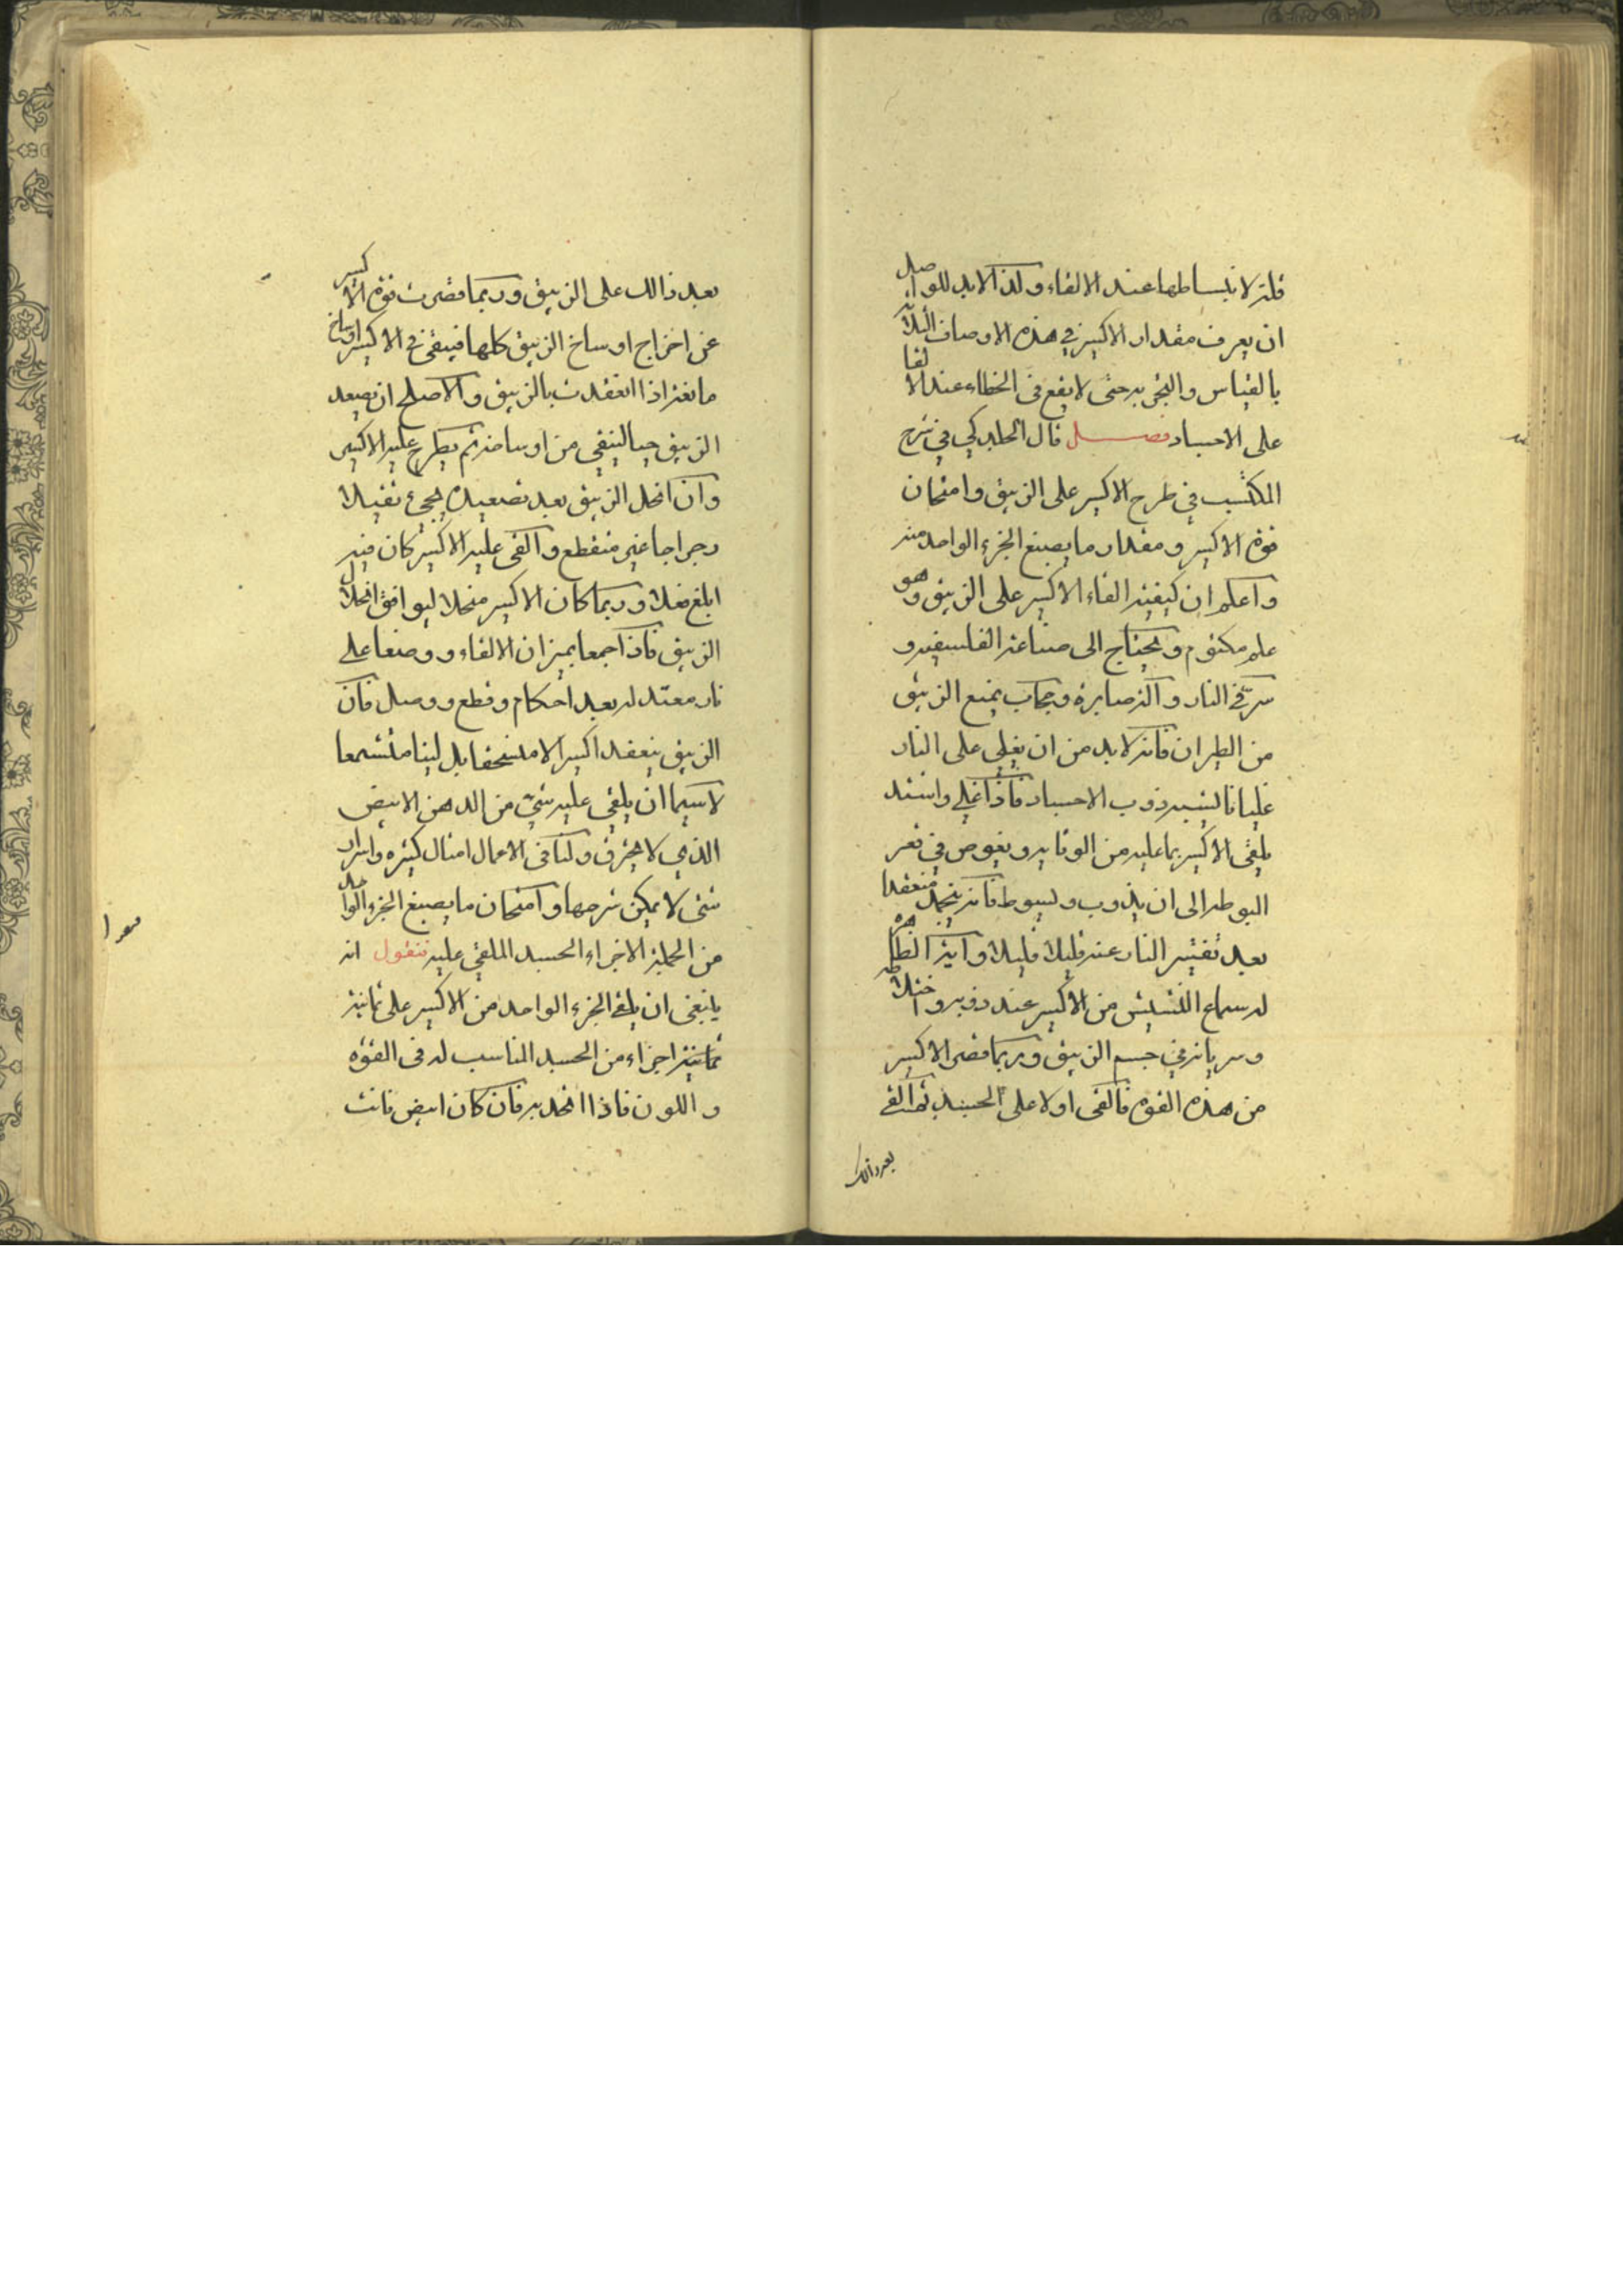 قلة لانبساطها عند الالقاء ولذا لابد للواصل
ان يعرف مقدار الاكسير في هذه الاوصاف الثلاثة
بالقياس والتجربة حتى لا يقع في الخطاء عند الالقا
على الاجساد فصل قال الجلدكي في شرح
المكتسب في طرح الاكسير على الزيبق وامتحان
قوة الاكسير ومقدار ما يصبغ الجزء الواحد منه
واعلم ان كيفية القاء الاكسير على الزيبق وهو
علم مكتوم ويحتاج الى صناعة الفلسفية و
سر في النار وآلة صابرة وحجاب يمنع الزيبق
من الطيران فانه لابد من ان يغلي على النار
غليانا ليشبه ذوب الاجساد فاذا غلى واشتد
يلقى الاكسير بما عليه من الوقاية ويغوص في قعر
البوطه الى ان يذوب وليسوط فانه ينجمد منعقدا
بعد تفتير النار عنه قليلا قليلا وآية الظاهره
له سماع النشيش من الاكسير عند ذوبه واختلاطه
وسريانه في جسم الزيبق وربما قصر الاكسير
من هذه القوه فالقى اولا على الجسد ثم القى
بعد ذالك
بعد ذالك على الزيبق وربما قصرت قوة الاكسير
عن اخراج اوساخ الزيبق كلها فيبقى في الاكسير اوساخ
مانعة اذا انعقدت بالزيبق والاصلح ان يصعد
الزيبق حيا لينقى من اوساخه ثم يطرح عليه الاكسير
وان انحل الزيبق بعد تصعيده يجيء ثقيلا
رجراجا غير منقطع والقى عليه الاكسير كان فيه
ابلغ فعلا وربما كان الاكسير منحلا ليوافق انحلال
الزيبق فاذا جمعا بميزان الالقاء ووضعا على
نار معتدله بعد احكام وقطع ووصل فان
الزيبق ينعقد اكسيرا لا منسحقا بل لينا متشمعا
لاسيما ان يلقى عليه شيء من الدهن الابيض
الذي لا يحترق ولنا في الاعمال امثال كثيره واسرار
شتى لا يمكن شرحها وامتحان ما يصبغ الجزء الواحد
من الجملة الاجزاء الجسد الملقى عليه فنقول انه
ينبغى ان يلقى الجزء الواحد من الاكسير على ثمانية
ثمانية اجزاء من الجسد المناسب له فى القوه
واللون فاذا اتحد به فان كان ابيض فانت